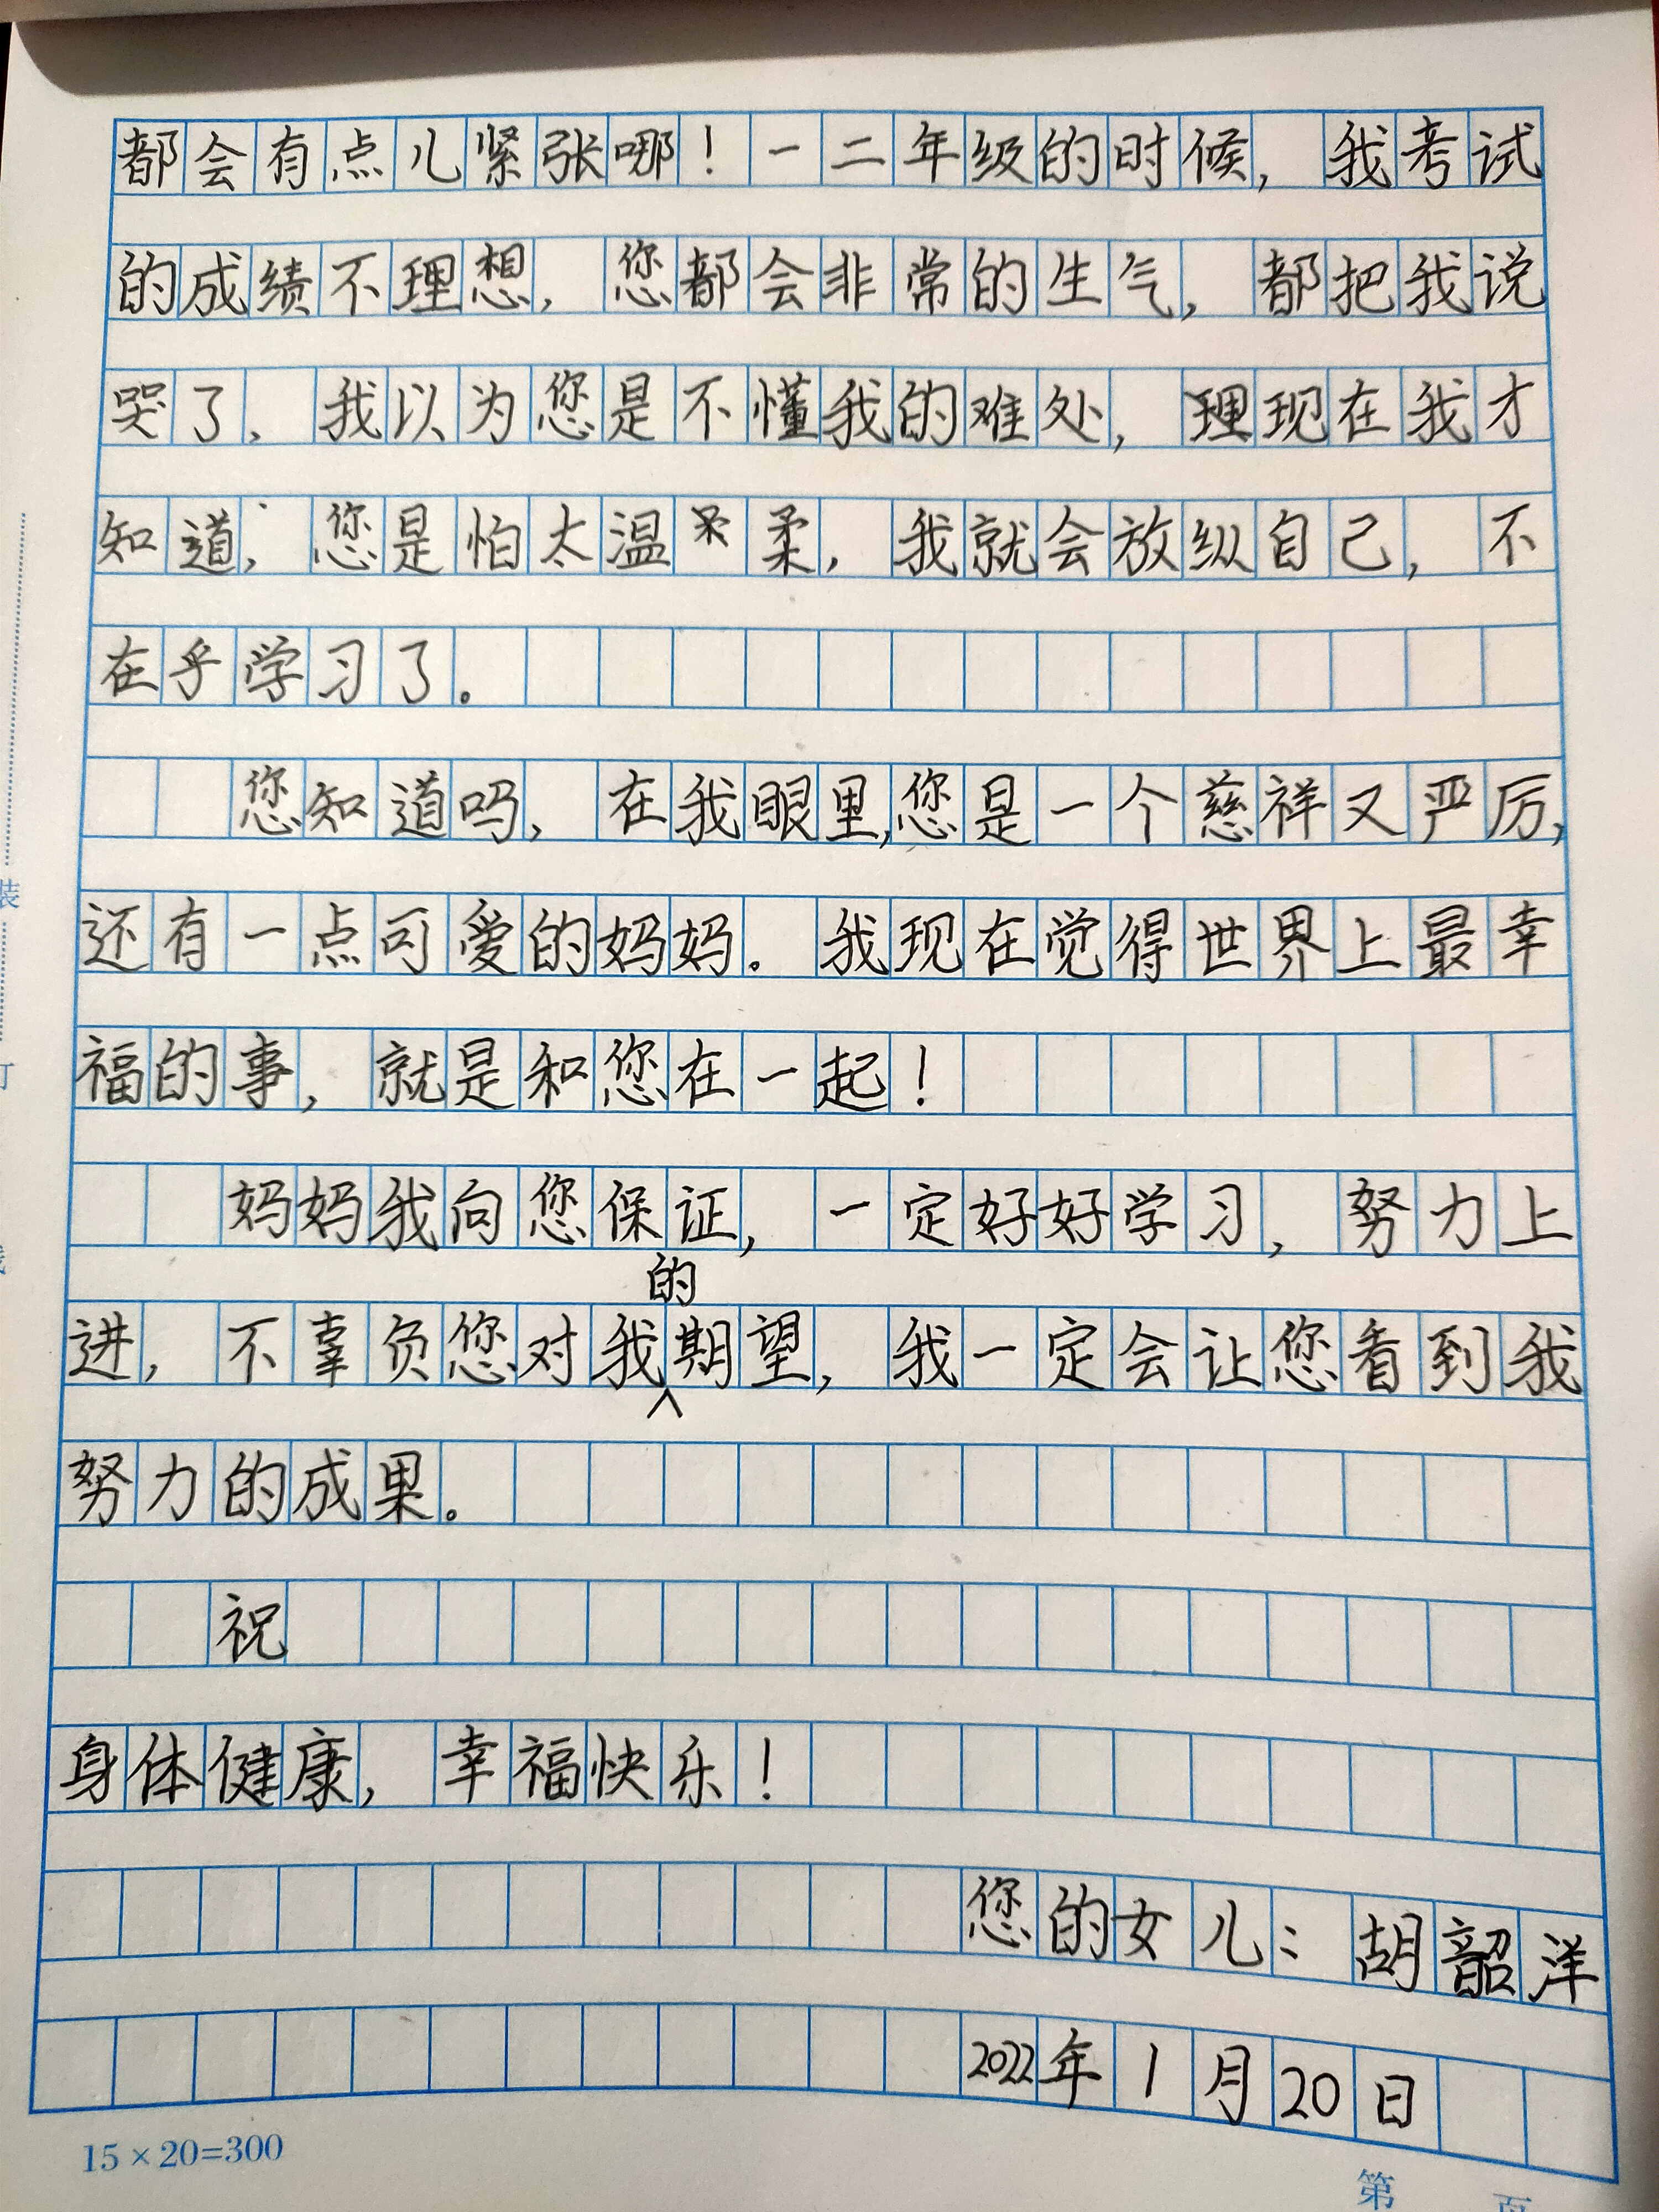 都会有点儿紧张哪！一二年级的时候，我考试
的成绩不理想，您都会非常的生气，都把我说
哭了，我以为您是不懂我的难处，现在我才
知道，您是怕太温柔，我就会放纵自己，不
在乎学习了。
您知道吗，在我眼里，您是一个慈祥又严厉，
还有一点可爱的妈妈。我现在觉得世界上最幸
福的事，就是和您在一起！
妈妈我向您保证，一定好好学习，努力上
进，不辜负您对我的期望，我一定会让您看到我
努力的成果。
祝
身体健康，幸福快乐！
您的女儿：胡韶洋
2022年1月20日
15×20=300
第 页
装
订